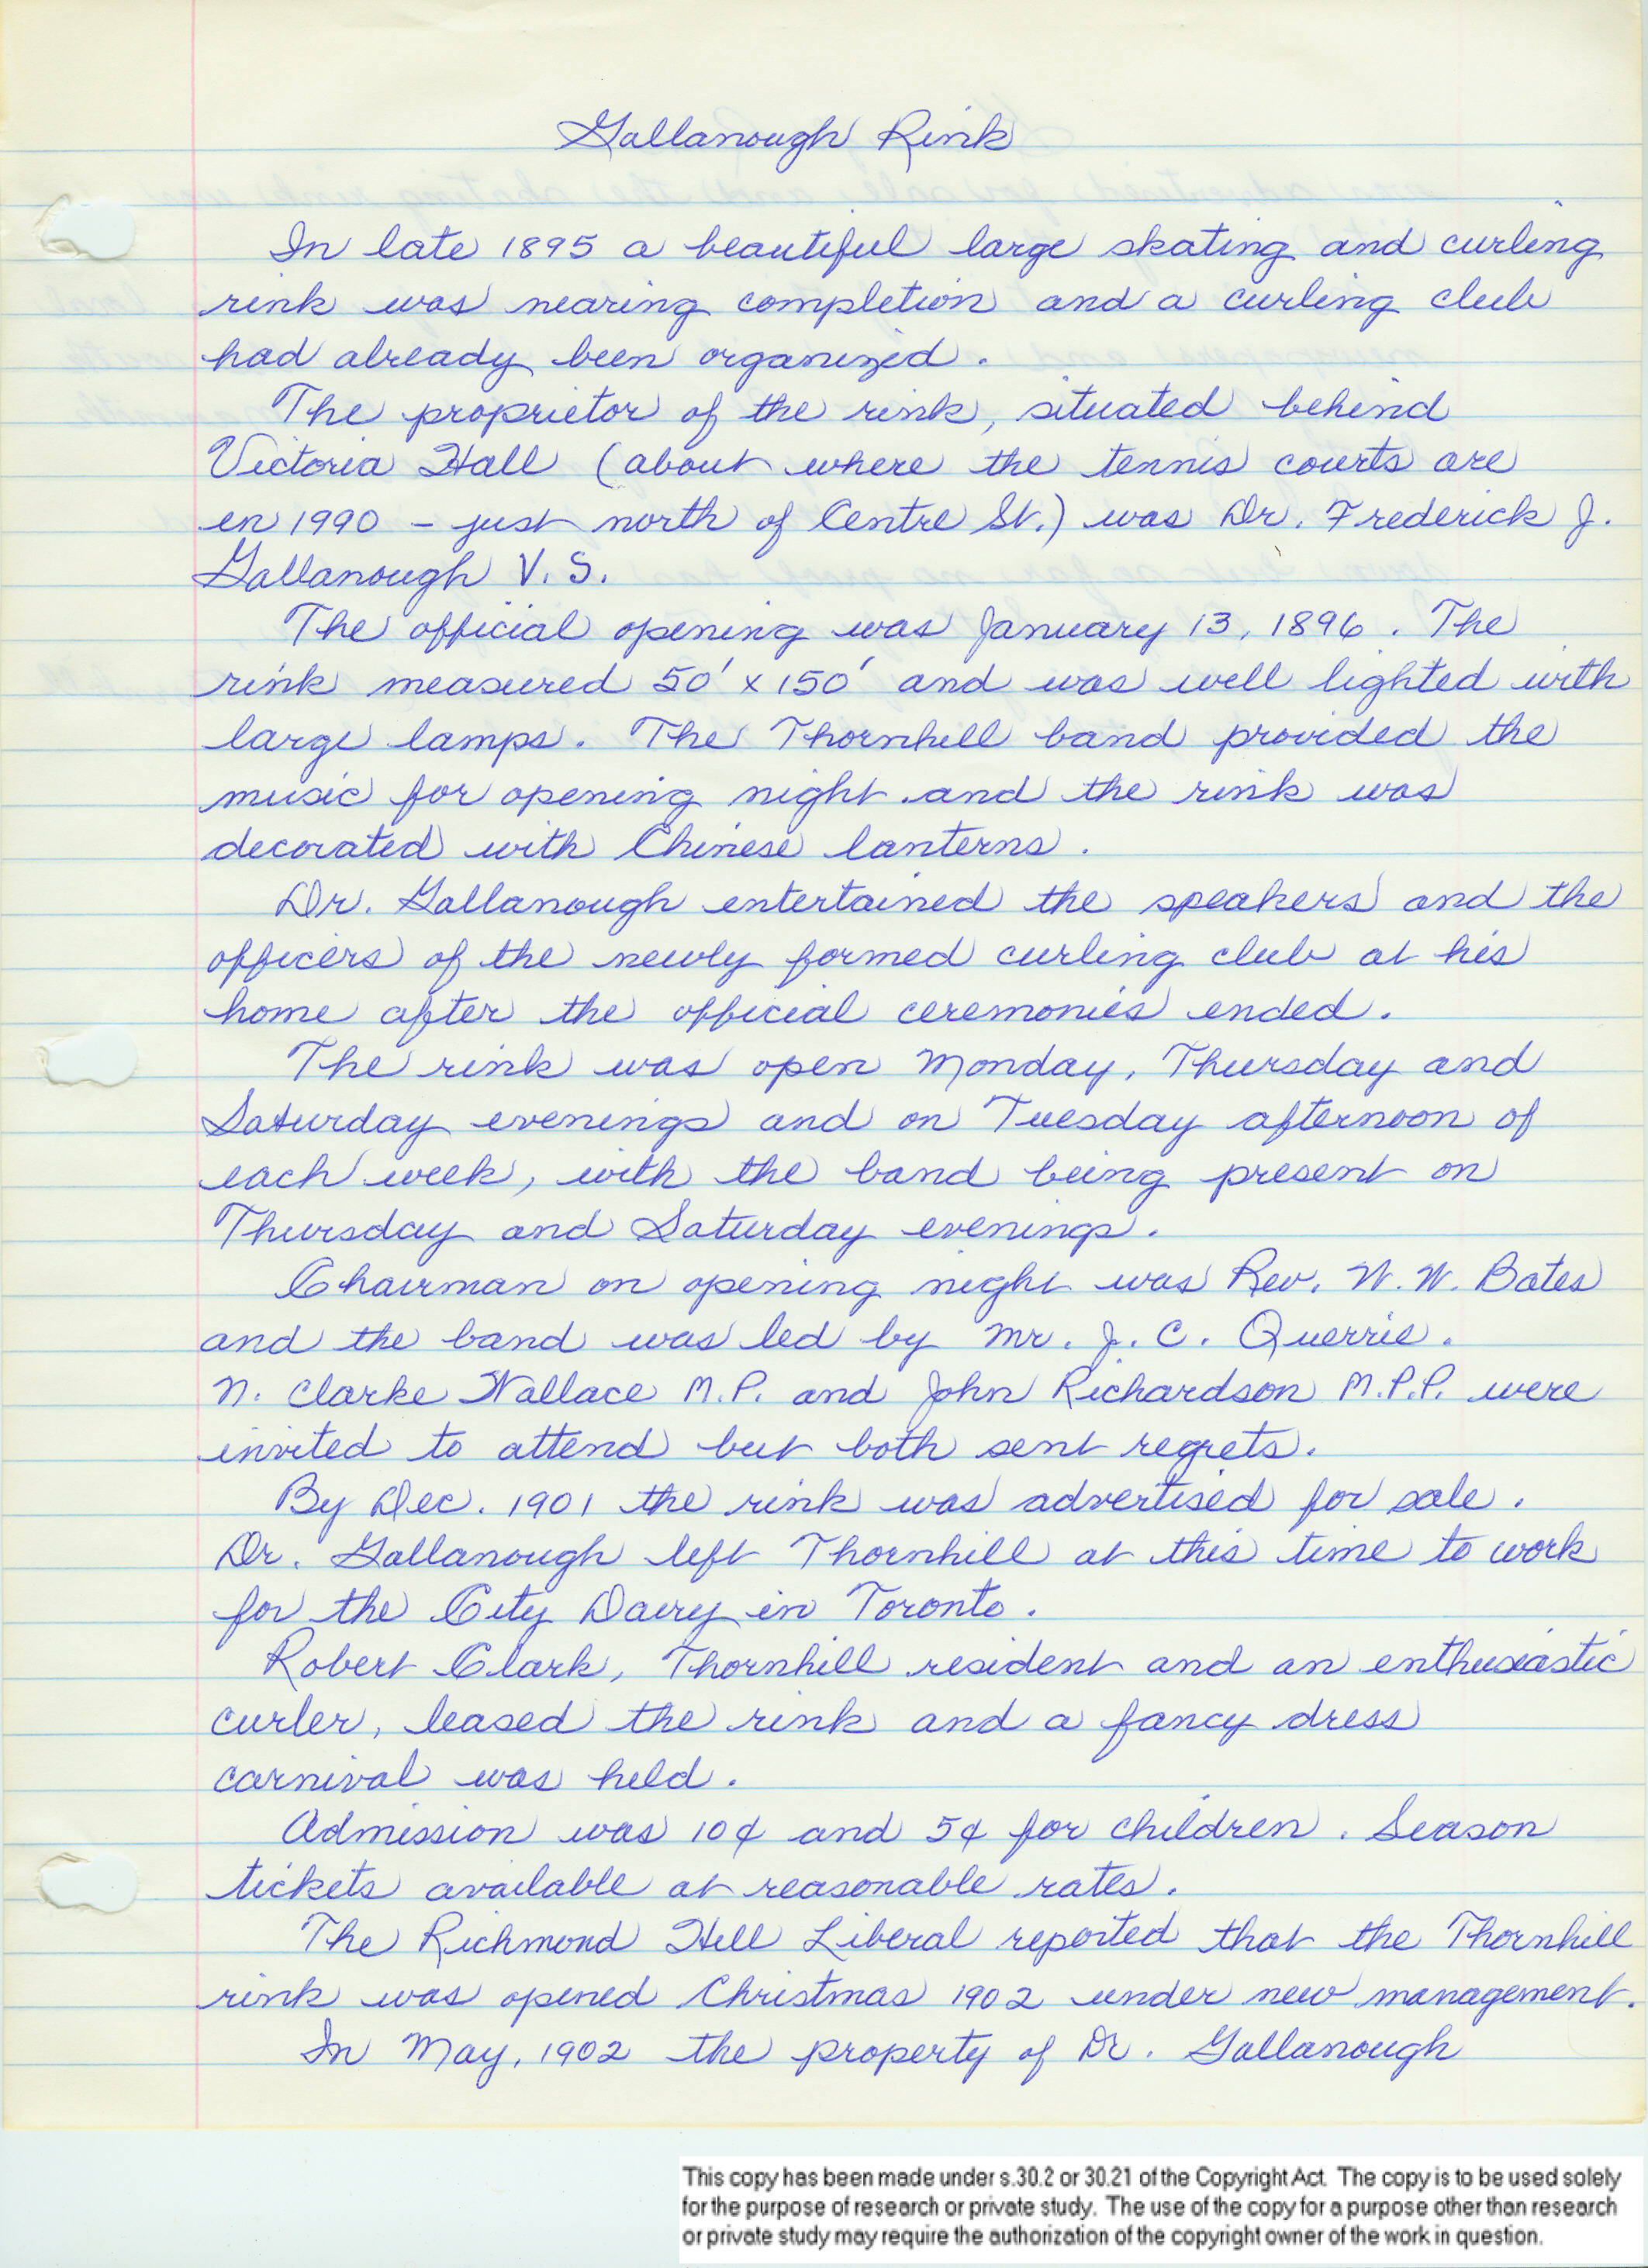 Gallanough Rink
In late 1895 a beautiful large skating and curling
rink was nearing completion and a curling club
had already been organized.
The proprietor of the rink, situated behind
Victoria Hall (about where the tennis courts are
in 1990 - just north of Centre St.) was Dr. Frederick J.
Gallanough V.S.
The official opening was January 13, 1896. The
rink measured 50' x 150' and was well lighted with
large lamps. The Thornhill band provided the
music for opening night and the rink was
decorated with Chinese lanterns.
Dr. Gallanough entertained the speakers and the
officers of the newly formed curling club at his
home after the official ceremonies ended.
The rink was open Monday, Thursday and
Saturday evenings and on Tuesday afternoon of
each week, with the band being present on
Thursday and Saturday evenings.
Chairman on opening night was Rev. W. W. Bates
and the band was led by Mr. J. C. Querrie.
N. Clarke Wallace M.P. and John Richardson M.P.P. were
invited to attend but both sent regrets.
By Dec. 1901 the rink was advertised for sale.
Dr. Gallanough left Thornhill at this time to work
for the City Dairy in Toronto.
Robert Clark, Thornhill resident and an enthusiastic
curler, leased the rink and a fancy dress
carnival was held.
Admission was 10¢ and 5¢ for children. Season
tickets available at reasonable rates.
The Richmond Hill Liberal reported that the Thornhill
rink was opened Christmas 1902 under new management.
In May, 1902 the property of Dr. Gallanough
This copy has been made under s.30.2 or 30.21 of the Copyright Act. The copy is to be used solely
for the purpose of research or private study. The use of the copy for a purpose other than research
or private study may require the authorization of the copyright owner of the work in question.